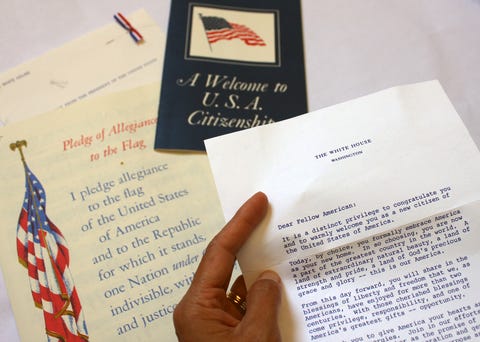 THE WHITE HOUSE
FROM THE PRESIDENT OF THE UNITED STATES
A Welcome to
U.S.A.
Citizenship
Pledge of Allegiance
to the Flag
I pledge allegiance
to the flag
of the United States
of America
and to the Republic
for which it stands,
one Nation under
indivisible, with
and justice
THE WHITE HOUSE
WASHINGTON
Dear Fellow American:
It is a distinct privilege to congratulate you
and to warmly welcome you as a new citizen of
the United States of America.
Today, by choice, you formally embrace America
as your new home; by so choosing, you are now
a part of the greatest country in the world. A
land of extraordinary natural beauty, a land of
strength and pride, a land of God's precious
grace and glory -- this is our America.
From this day forward, you will share in the
blessings of liberty and freedom that we,
Americans, have enjoyed for more than two
centuries. With those cherished blessings
come privilege, responsibility, and one of
America's greatest gifts -- opportunity.
you to give America your hearts a
Join in our efforts